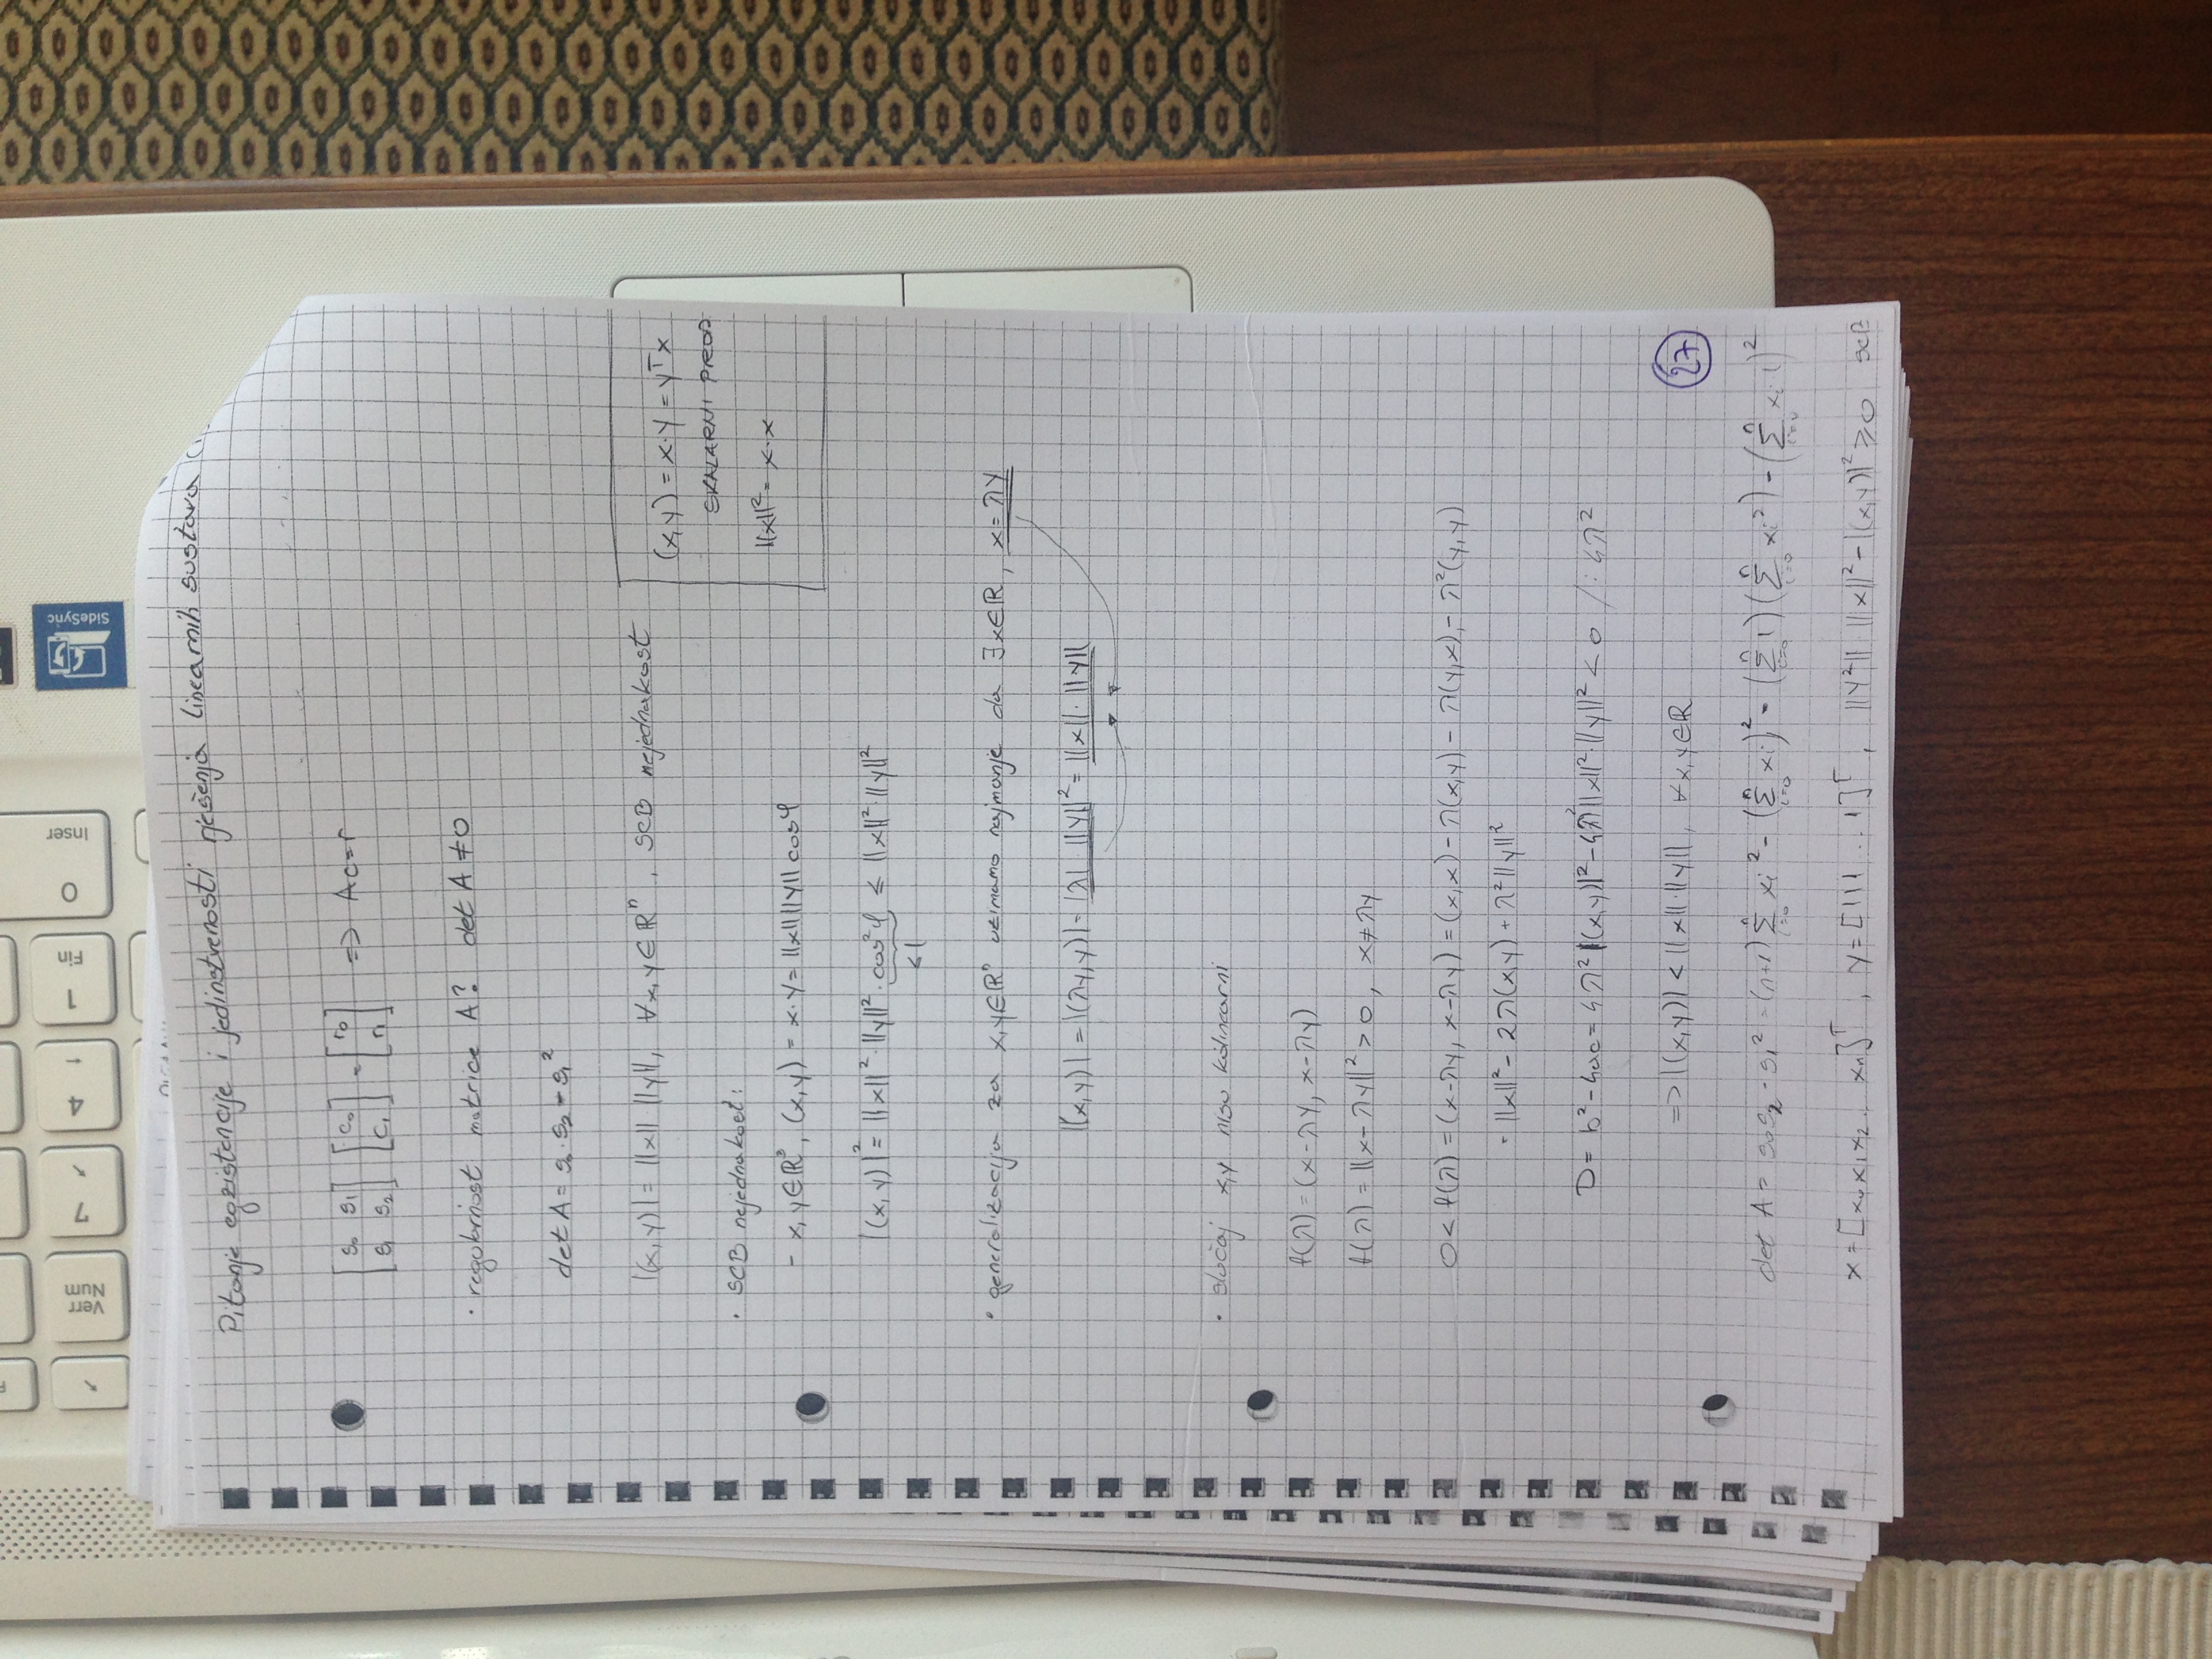 Verr Num
7
4
1 Fin
0 Inser
SideSync
Pitanje egzistencije i jedinstvenosti rješenja linearnih sustava
[s₀ s₁; s₁ s₂] [c₀; c₁] = [r₀; r₁] => Ac=r
· regularnost matrice A? det A ≠ 0
det A = s₀·s₂ - s₁²
|(x,y)| = ||x|| ||y||, ∀x,y∈ℝⁿ, SCB nejednakost
(x,y) = x·y = yᵀx
SKALARNI PROD
||x||² = x·x
· SCB nejednakost:
- x,y∈ℝ³, (x,y) = x·y = ||x|| ||y|| cosφ
|(x,y)|² = ||x||²·||y||²·cos²φ ≤ ||x||²·||y||²
<1
· generalizacija za x,y∈ℝⁿ uzimamo najmanje da ∃x∈ℝ, x=λy
|(x,y)| = |(λy,y)| = |λ| ||y||² = ||x||·||y||
· slučaj x,y nisu kolinearni
f(λ) = (x-λy, x-λy)
f(λ) = ||x-λy||² > 0, x≠λy
0 < f(λ) = (x-λy, x-λy) = (x,x) - λ(x,y) - λ(y,x) - λ²(y,y)
= ||x||² - 2λ(x,y) + λ²||y||²
D = b²-4ac = 4λ²|(x,y)|² - 4λ²||x||²·||y||² < 0 /:4λ²
=> |(x,y)| < ||x||·||y||, ∀x,y∈ℝ
27
det A = s₀s₂ - s₁² = (n+1) Σⁿᵢ₌₀ xᵢ² - (Σⁿᵢ₌₀ xᵢ)² = (Σⁿᵢ₌₀ 1)(Σⁿᵢ₌₀ xᵢ²) - (Σⁿᵢ₌₀ xᵢ·1)²
x = [x₀x₁x₂... xₙ]ᵀ, y = [111...1]ᵀ, ||y²||·||x||² - |(x,y)|² ≥ 0 SCB